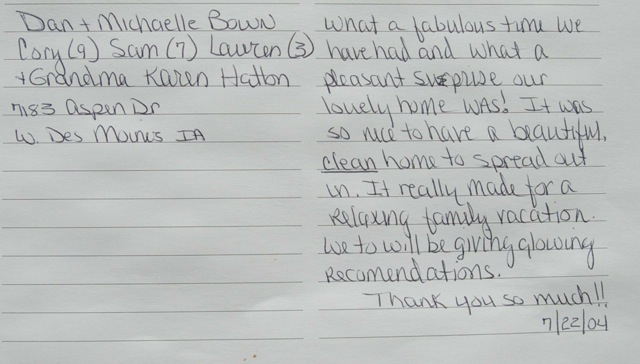 Dan + Michaelle Bown
Cory (9) Sam (7) Lauren (3)
+ Grandma Karen Hatton
7183 Aspen Dr
W. Des Moines IA
What a fabulous time we
have had and what a
pleasant surprise our
lovely home was! It was
so nice to have a beautiful,
clean home to spread out
in. It really made for a
relaxing family vacation.
We to will be giving glowing
recomendations.
Thank you so much!!
7/22/04